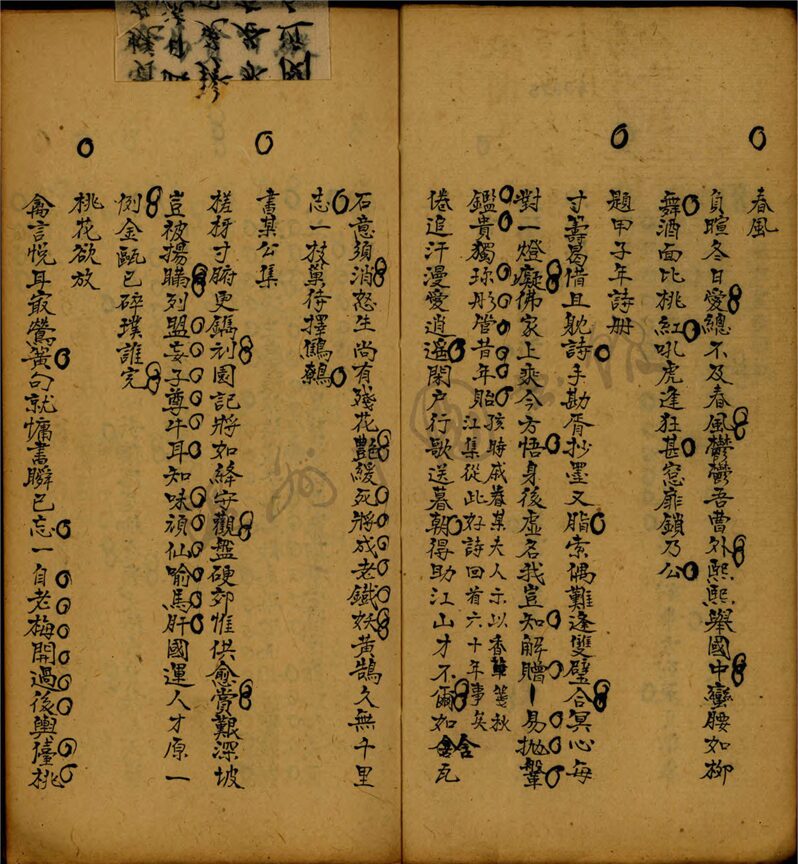 春風
負暄冬日愛總不及春風鬱鬱吾曹外熙熙舉國中蠻腰如柳
舞酒面比桃紅吼虎逢狂甚窓扉鎖乃公
題甲子年詩册
寸籌曷借且耽詩手勘胥抄墨又脂索偶難逢雙璧合冥心每
對一燈癡佛家上乘今方悟身後虛名我豈知解贈人易拋鞶
鑑貴獨珍彤管昔年貽 孩時戚眷某夫人示以香草箋秋
江集從此好詩回首六十年事矣
倦追汗漫愛逍遙閑户行歌送暮朝得助江山才不爾如含瓦
石意須消怒生尚有殘花艷緩死將成老鐵妖黃鵠久無千里
志一枝巢待擇鷦鷯
書某公集
槎枒寸腑更鐫刻園記將如絳守觀盤硬郊惟供愈賞艱深坡
豈被揚瞞列盟妄子尊牛耳知味頑仙喻馬肝國運人才原一
例金甌已碎璞誰完
桃花欲放
禽言悦耳最鶯簧句就慵書瞬已忘一自老梅開過後輿儓桃